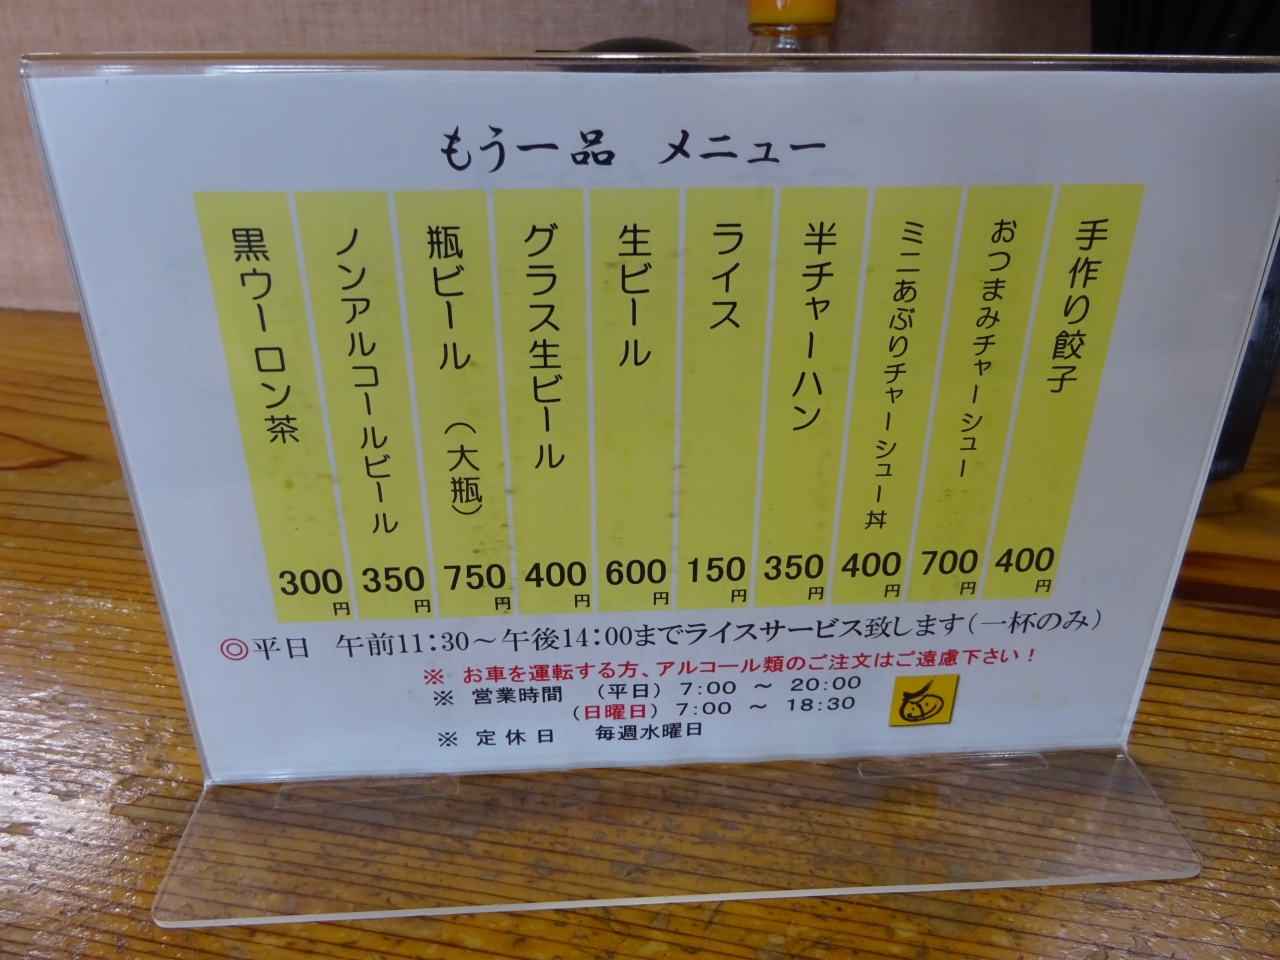 もう一品 メニュー
手作り餃子 400円
おつまみチャーシュー 700円
ミニあぶりチャーシュー丼 400円
半チャーハン 350円
ライス 150円
生ビール 600円
グラス生ビール 400円
瓶ビール (大瓶) 750円
ノンアルコールビール 350円
黒ウーロン茶 300円
◎平日 午前11:30～午後14:00までライスサービス致します(一杯のみ)
※ お車を運転する方、アルコール類のご注文はご遠慮下さい!
※ 営業時間 (平日) 7:00 ～ 20:00
(日曜日) 7:00 ～ 18:30
※ 定休日 毎週水曜日